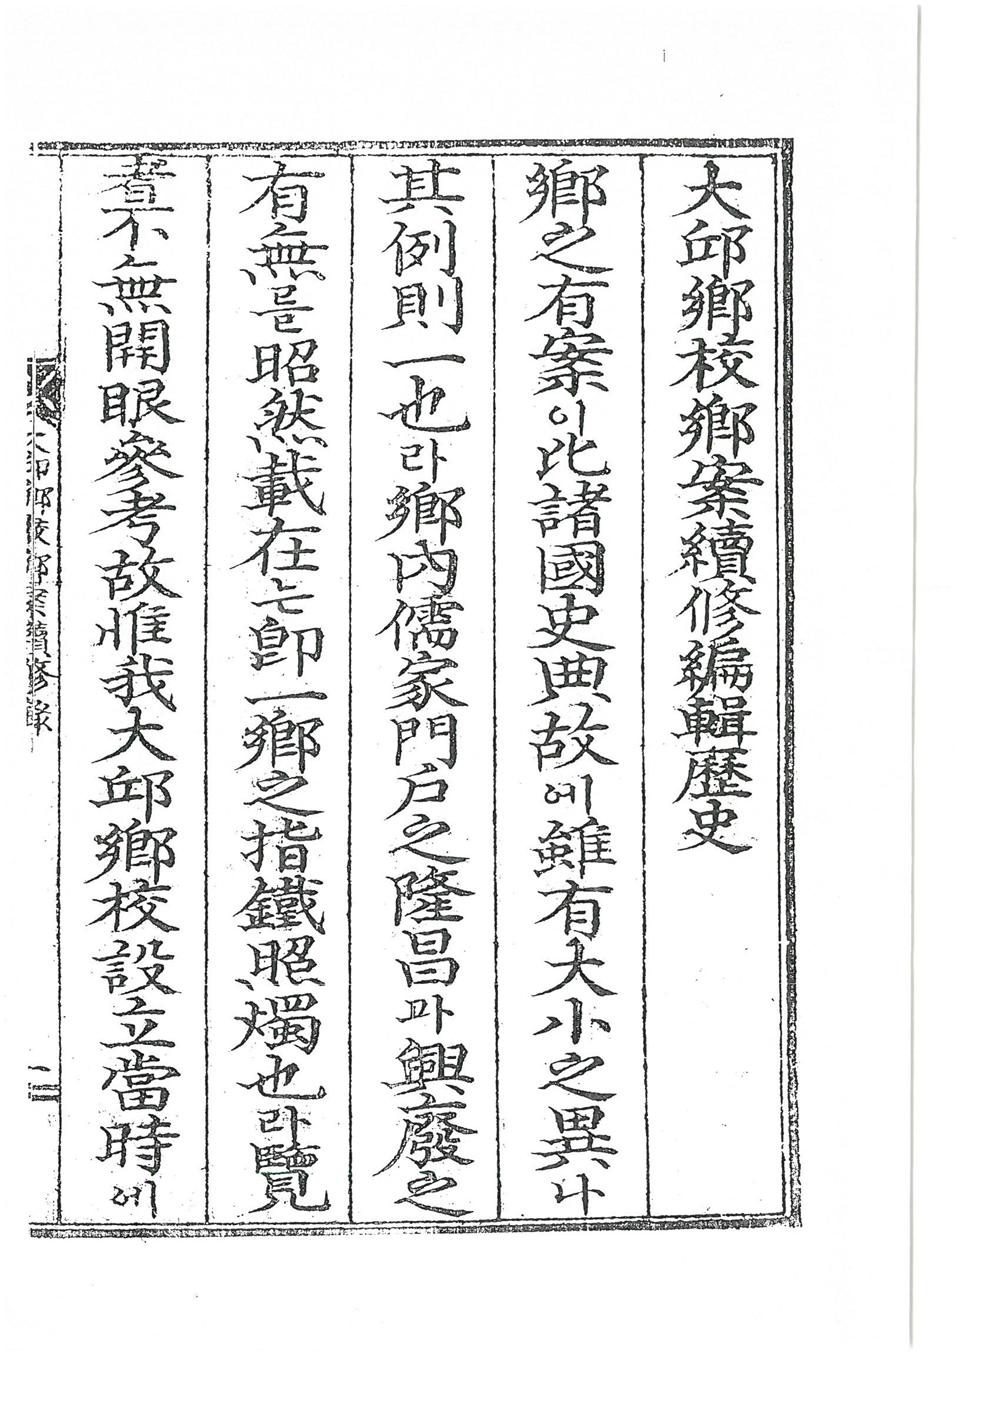 大邱鄕校鄕案續修編輯歷史
鄕之有案이比諸國史典故에雖有大小之異나
其例則一也라鄕內儒家門戶之隆昌과興廢之
有無를昭然載在는卽一鄕之指鐵照燭也라覽
者不無開眼參考故惟我大邱鄕校設立當時에
大邱鄕校鄕案續修錄